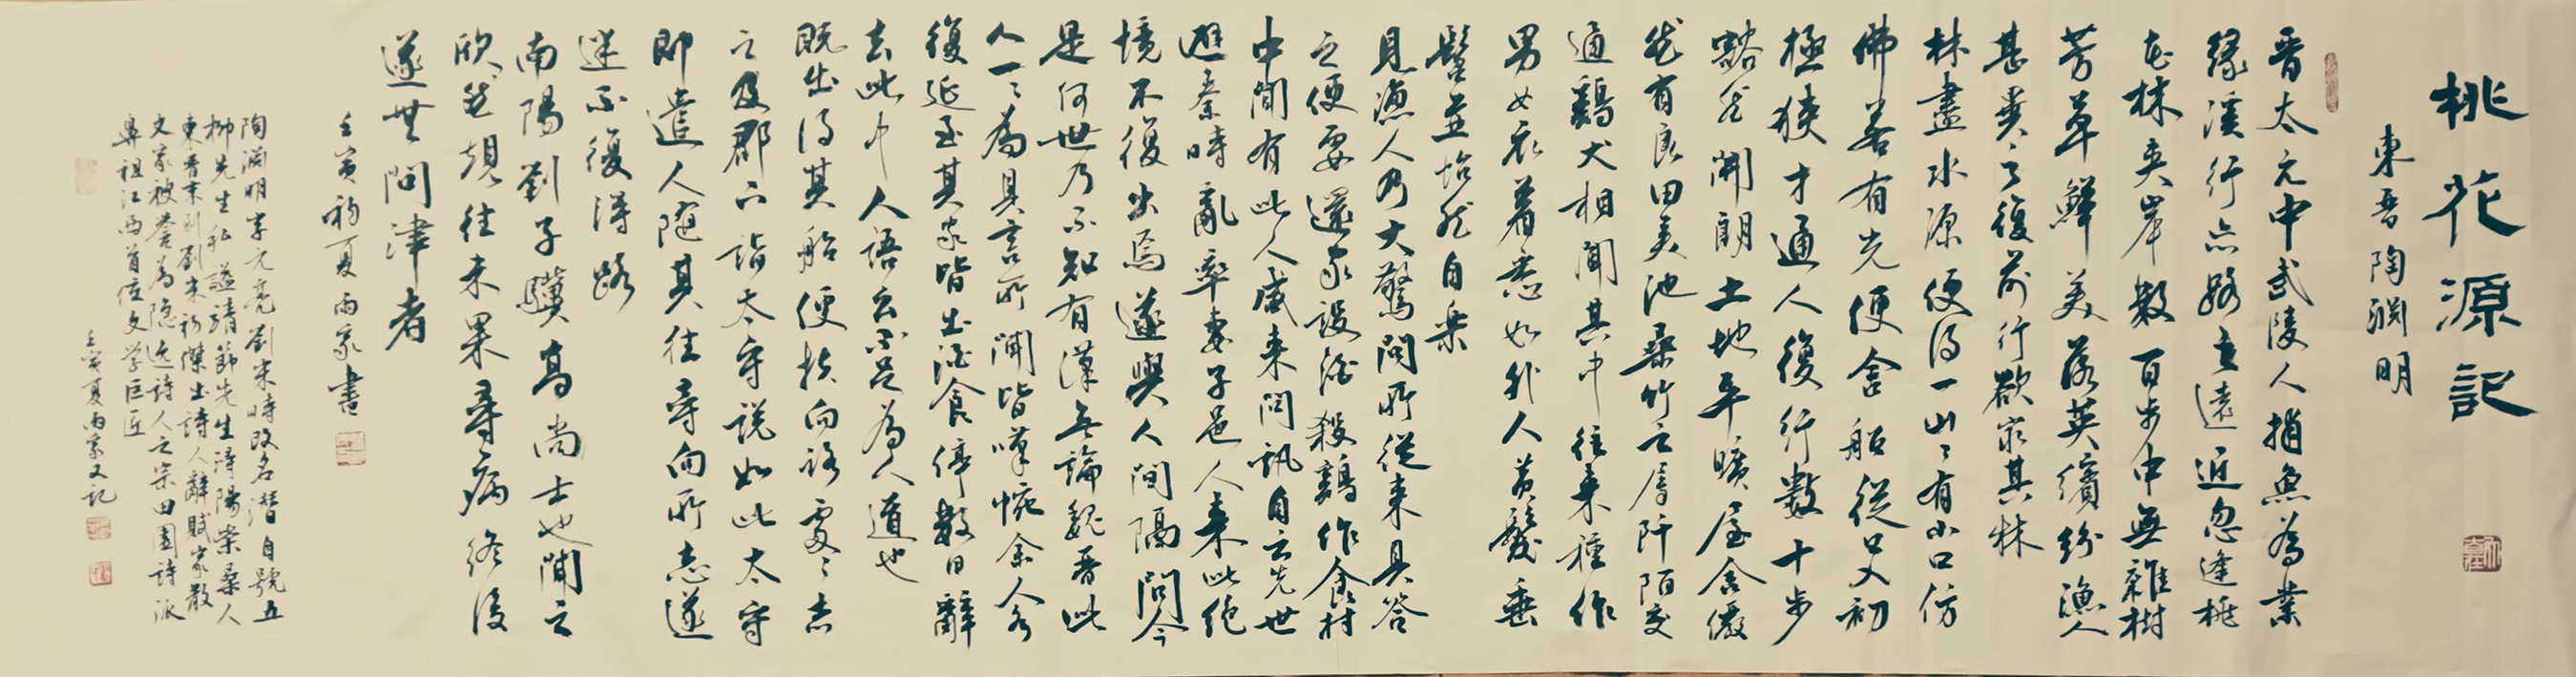 桃花源記
東晉陶淵明
晉太元中武陵人捕魚為業
緣溪行忘路之遠近忽逢桃
花林夾岸數百步中無雜樹
芳草鮮美落英繽紛漁人
甚異之復前行欲窮其林
林盡水源便得一山山有小口仿
佛若有光便舍船從口初
極狹才通人復行數十步
豁然開朗土地平曠屋舍儼
然有良田美池桑竹之屬阡陌交
通雞犬相聞其中往來種作
男女衣著悉如外人黃髮垂
髫並怡然自樂
見漁人乃大驚問所從來具答
之便要還家設酒殺雞作食村
中聞有此人咸來問訊自云先世
避秦時亂率妻子邑人來此絕
境不復出焉遂與人間隔問今
是何世乃不知有漢無論魏晉此
人一一為具言所聞皆嘆惋余人各
復延至其家皆出酒食停數日辭
去此中人語云不足為人道也
既出得其船便扶向路處處志
之及郡下詣太守說如此太守
即遣人隨其往尋向所志遂
迷不復得路
南陽劉子驥高尚士也聞之
欣然規往未果尋病終後
遂無問津者
壬寅初夏雨家書
陶淵明字元亮劉宋時改名潛自號五
柳先生私謚靖節先生潯陽柴桑人
東晉末到劉宋初傑出詩人辭賦家散
文家被譽為隱逸詩人之宗田園詩派
鼻祖江西首位文學巨匠
壬寅夏雨家又記